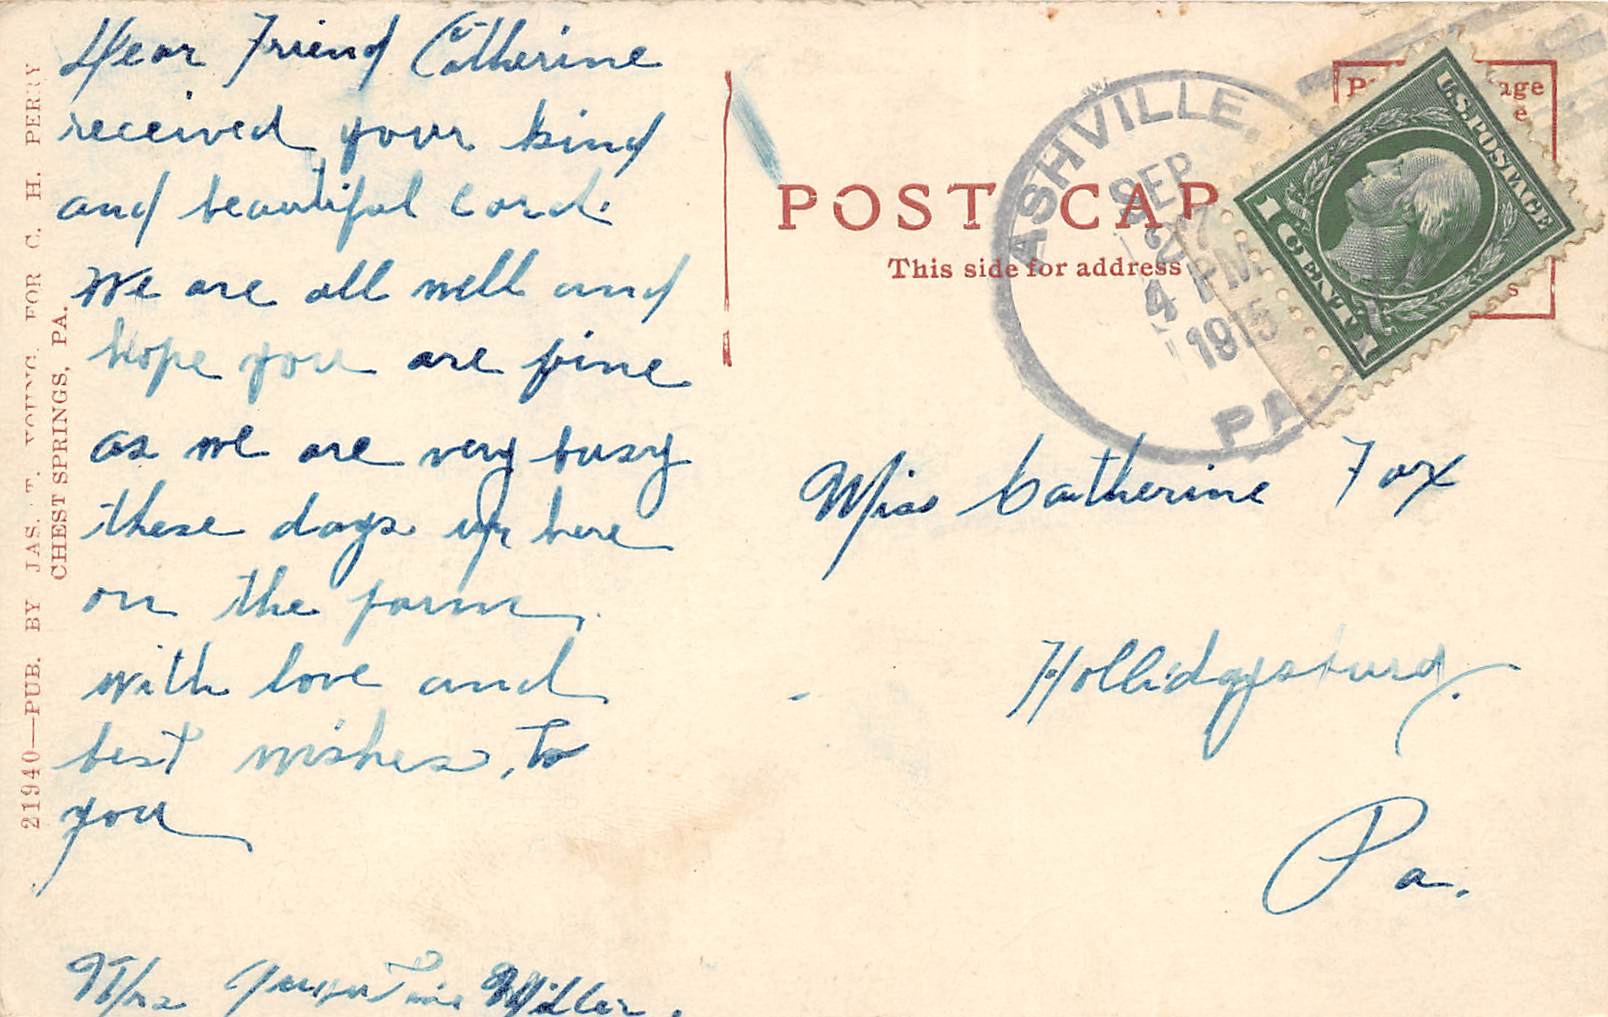 Dear Friend Catherine
received your kind
and beautiful card.
We are all well and
hope you are fine
as we are very busy
these days up here
on the farm
with love and
best wishes, to
you
Mrs Miller.
21940—PUB. BY JAS. T. YOUNG, FOR C. H. PERRY
CHEST SPRINGS, PA.
POST CAR
This side for address
ASHVILLE,
SEP
27
4 PM
1915
PA
U.S. POSTAGE
1 CENT 1
Miss Catherine Fox
Hollidaysburg.
Pa.